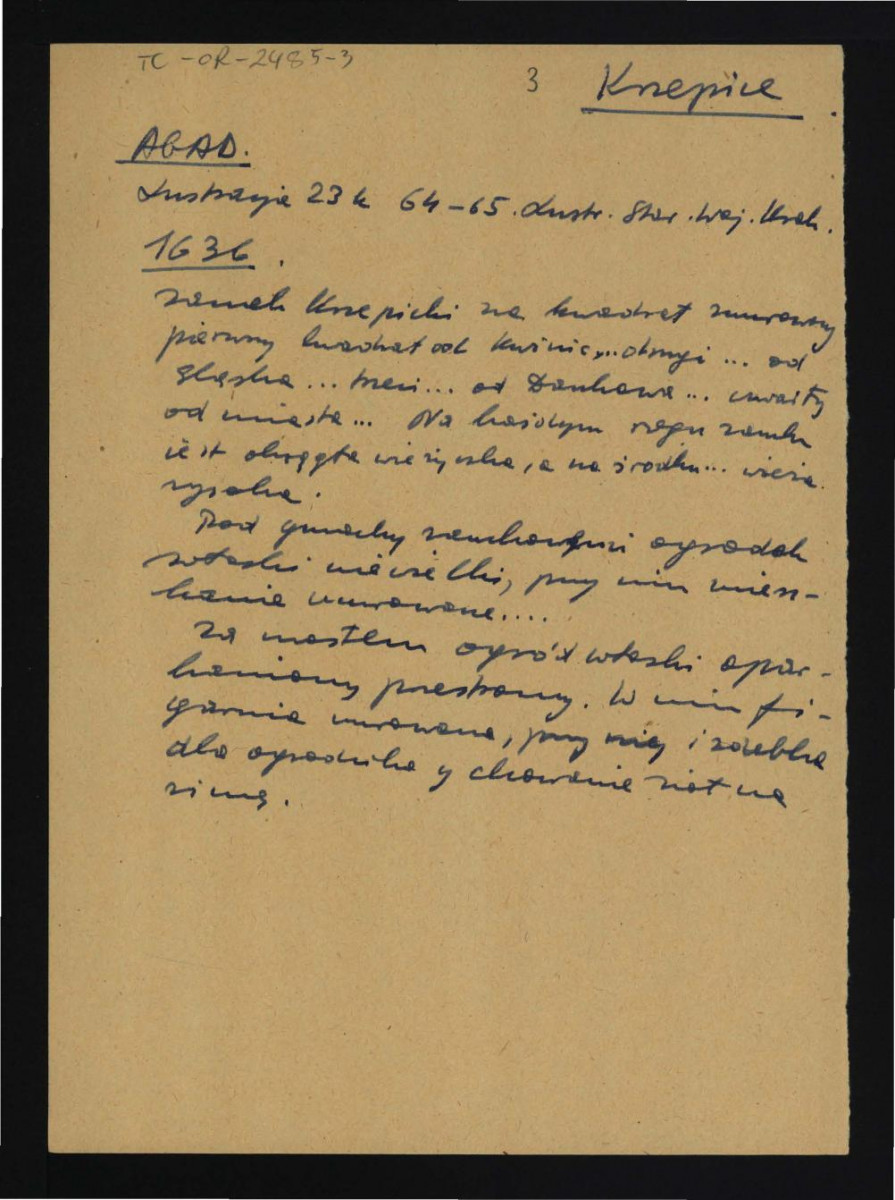 TC-OR-2485-3
3 Krzepice
AGAD.
Lustracje 23 k 64-65. Lustr. Star. Woj. Krak.
1636.
zamek Krzepicki na kwadrat zmurowany
pierwszy kwadrat od ... drugi ... od
Śląska ... trzeci ... od Dankowa ... czwarty
od miasta ... Na każdym rogu zamku
iest okrągła wieżyczka, a na środku ... wieża
wysoka.
Pod gmachy zamkowymi ogrodek
włoski niewielki, przy nim miesz-
kanie murowane....
Za mostem ogród włoski opar-
kaniony przestrony. W nim fi-
garnia murowana, przy niey i izdebka
dla ogrodnika y chowanie ziół na
zimę.